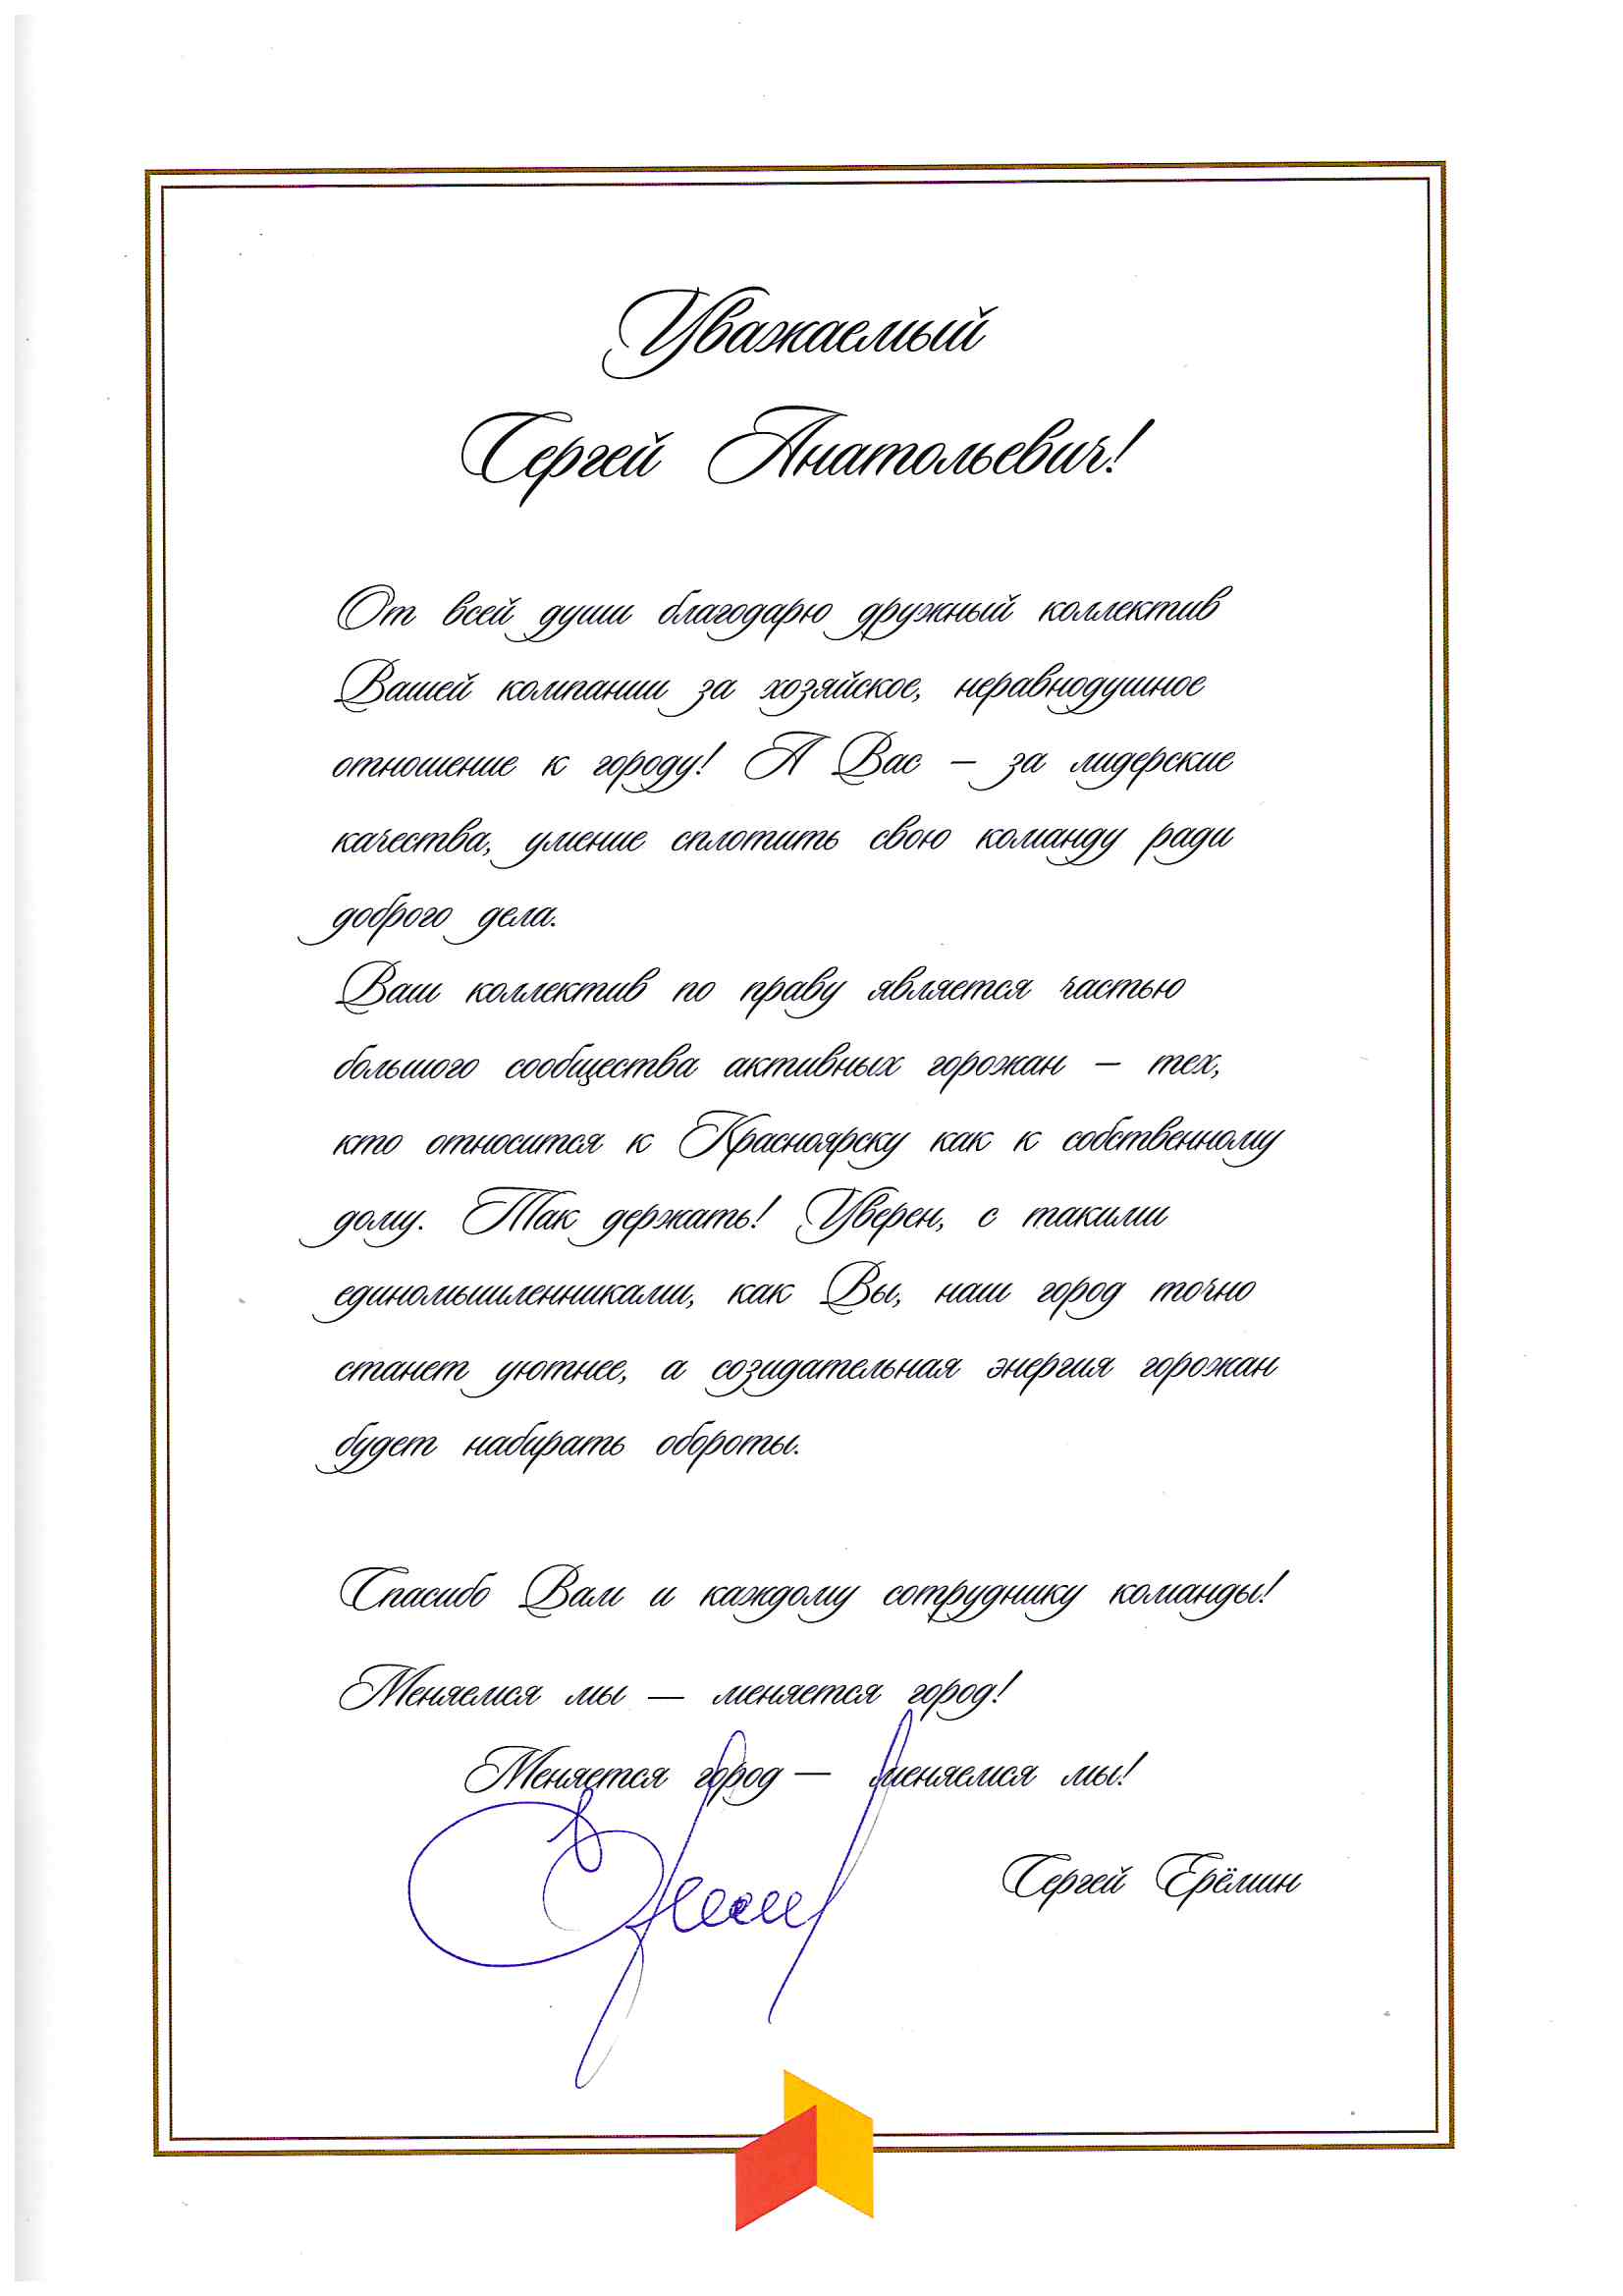 Уважаемый
Сергей Анатольевич!
От всей души благодарю дружный коллектив
Вашей компании за хозяйское, неравнодушное
отношение к городу! А Вас – за лидерские
качества, умение сплотить свою команду ради
доброго дела.
Ваш коллектив по праву является частью
большого сообщества активных горожан – тех,
кто относится к Красноярску как к собственному
дому. Так держать! Уверен, с такими
единомышленниками, как Вы, наш город точно
станет уютнее, а созидательная энергия горожан
будет набирать обороты.
Спасибо Вам и каждому сотруднику команды!
Меняемся мы — меняется город!
Меняется город — меняемся мы!
Сергей Ерёмин